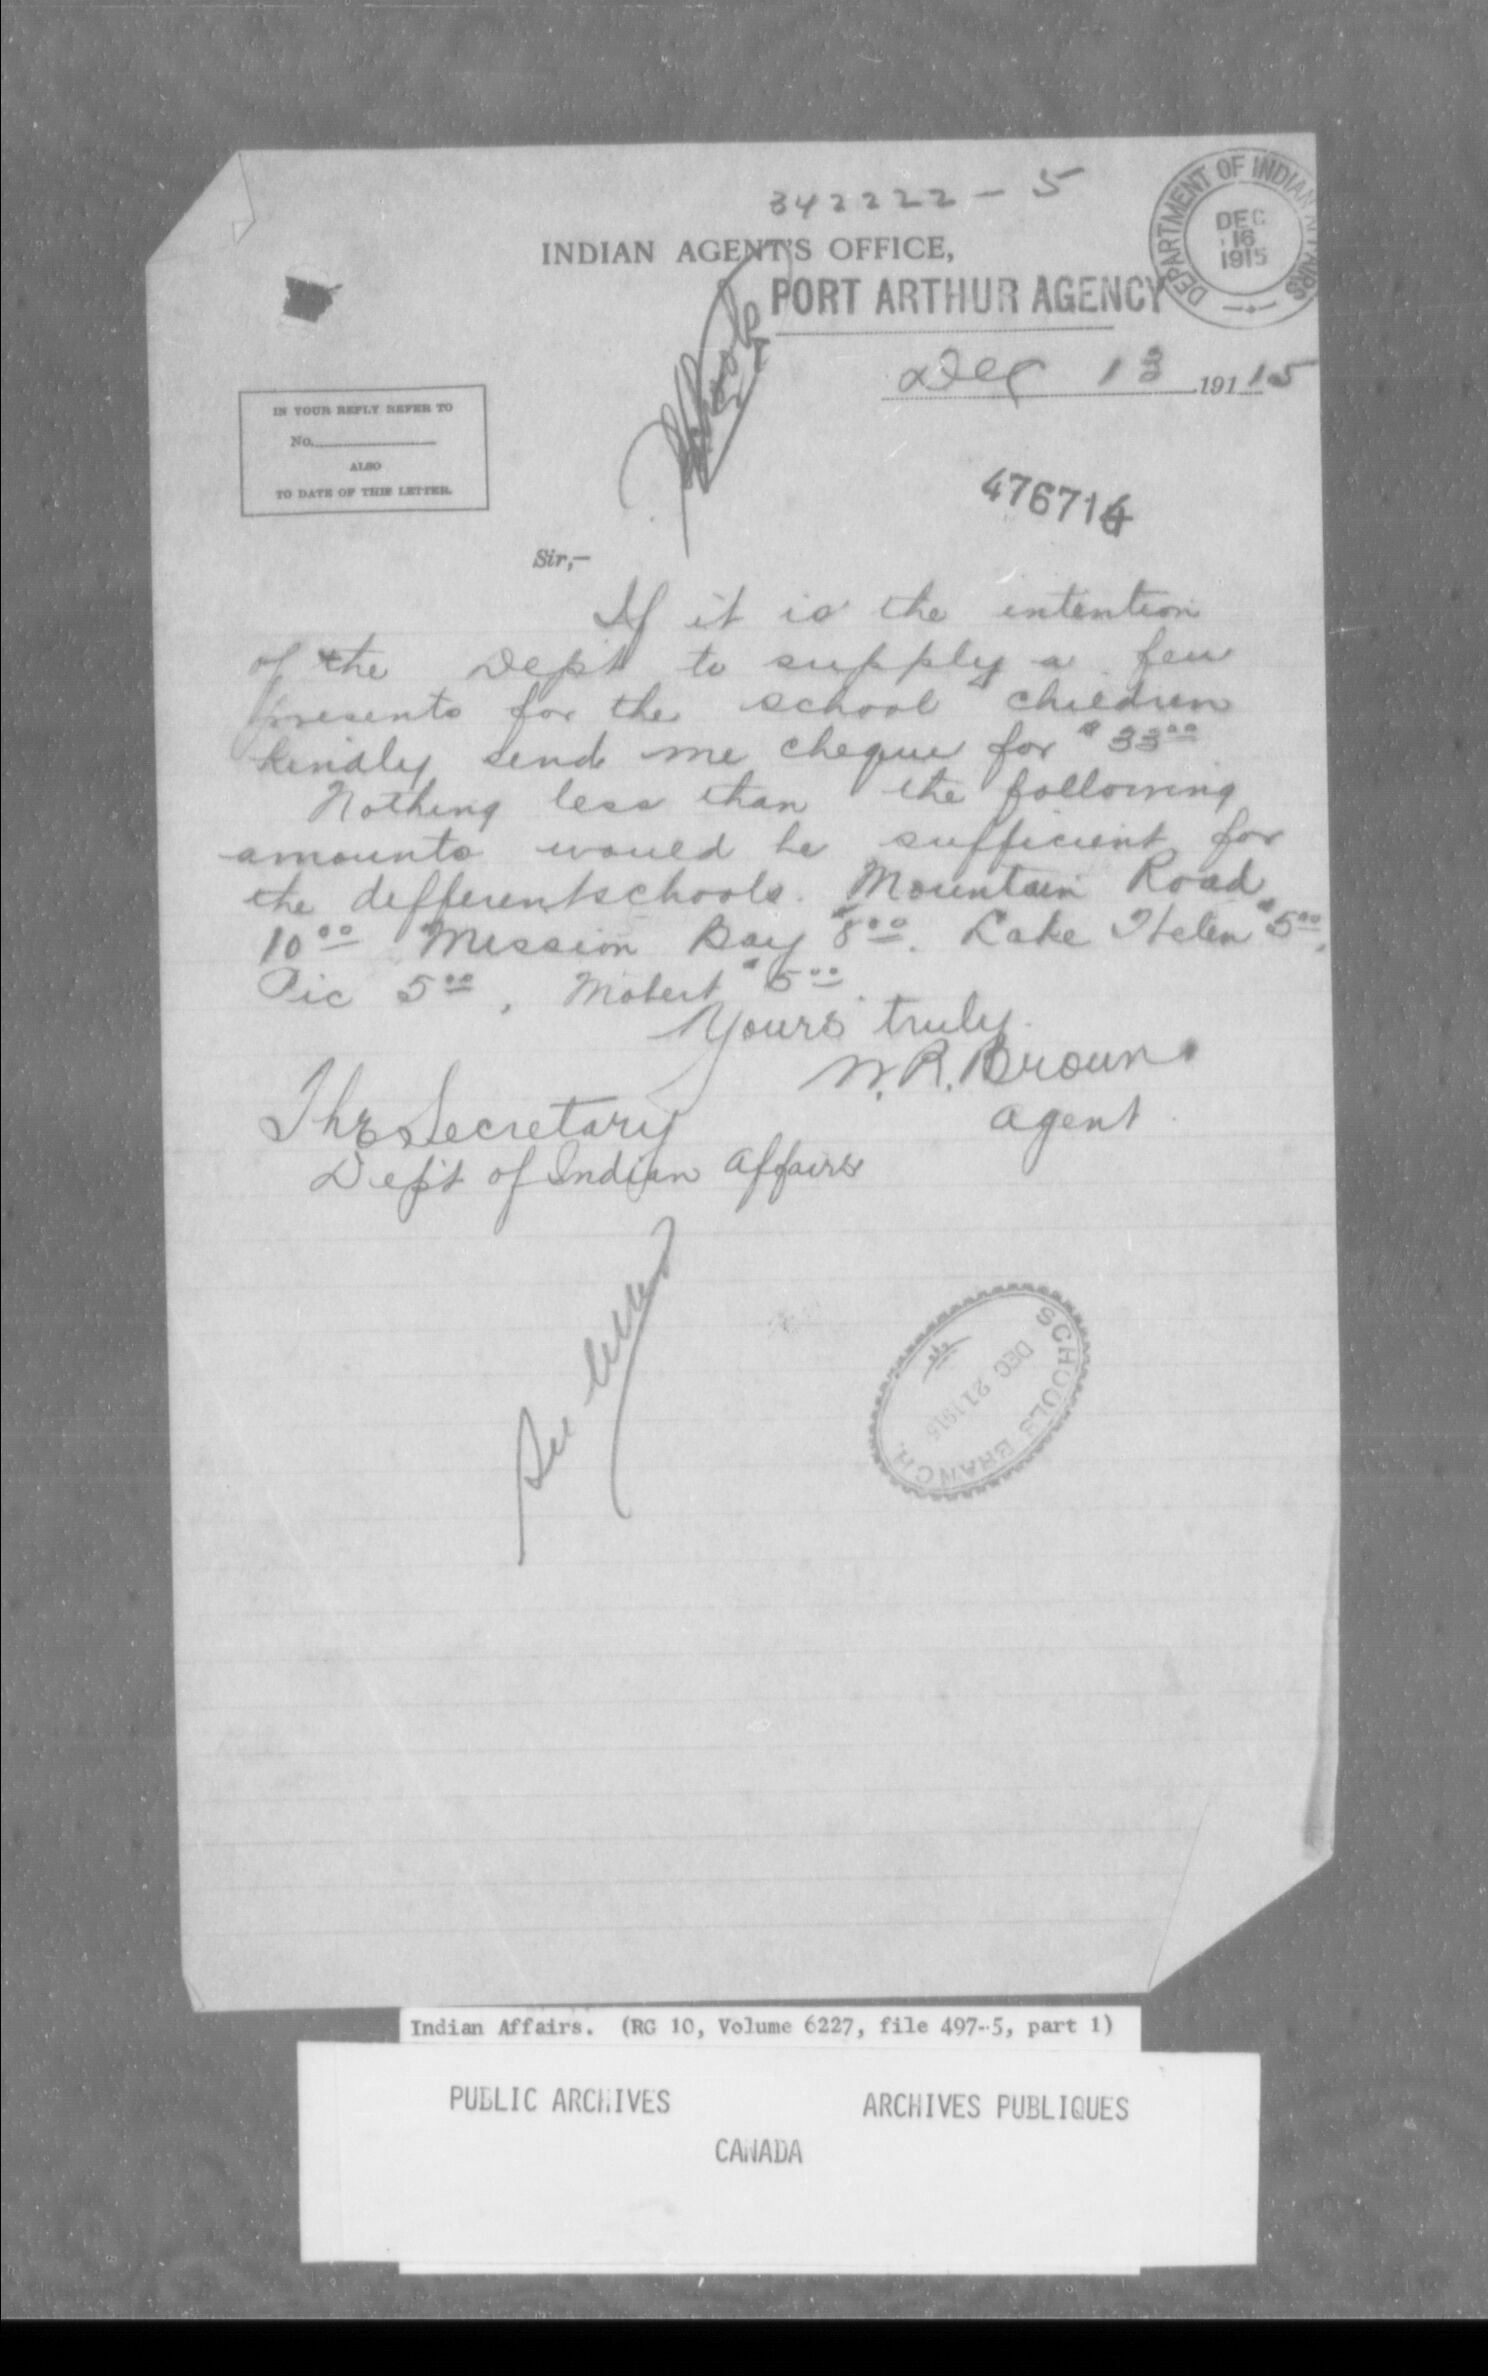 342222-5
DEPARTMENT OF INDIAN AFFAIRS
DEC
16
1915
INDIAN AGENT'S OFFICE,
PORT ARTHUR AGENCY
Schools
Dec 13 191 15
IN YOUR REPLY REFER TO
No.
ALSO
TO DATE OF THIS LETTER.
476714
Sir,—
If it is the intention
of the Dept to supply a few
presents for the school children
kindly send me cheque for $33.00
Nothing less than the following
amounts would be sufficient for
the different schools. Mountain Road
10.00 Mission Bay $8.00. Lake Helen $5.00,
Pic 5.00, Mobert $5.00.
Yours truly.
W. R. Brown
Agent
The Secretary
Dept of Indian Affairs
SCHOOLS BRANCH.
DEC 21 1915
Indian Affairs. (RG 10, Volume 6227, file 497-5, part 1)
PUBLIC ARCHIVES
ARCHIVES PUBLIQUES
CANADA